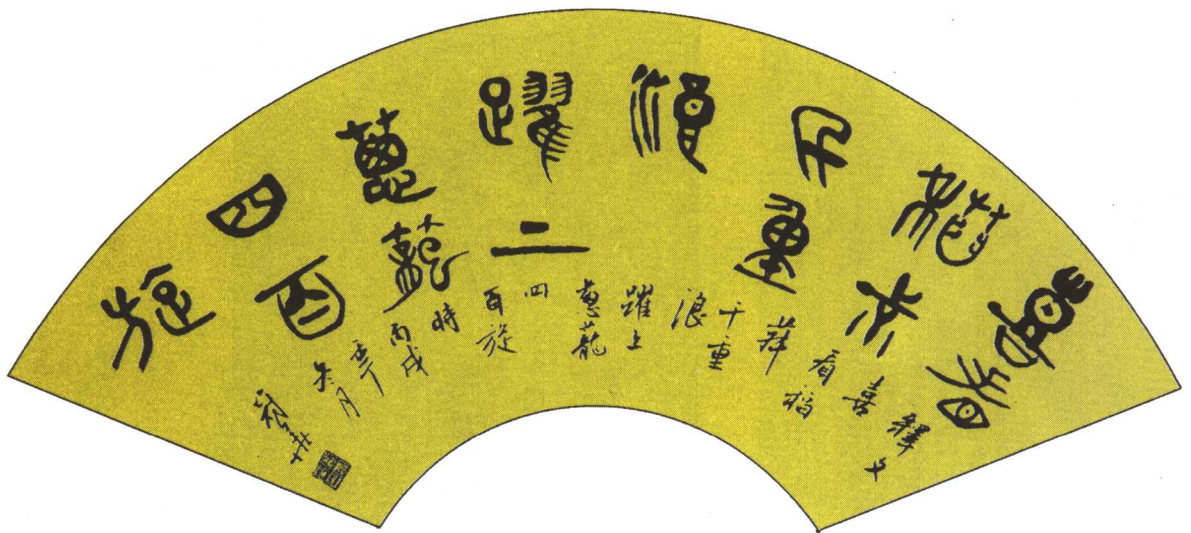 喜看
稻菽
千重
浪
躍上
蔥蘢
四百
旋
釋文
喜
看稻
菽
千重
浪
躍上
蔥蘢
四
百旋
時
丙戌
年
冬月